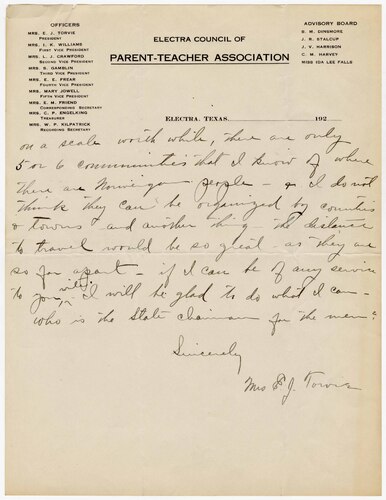 OFFICERS
MRS. E. J. TORVIE
PRESIDENT
MRS. I. K. WILLIAMS
FIRST VICE PRESIDENT
MRS. L. J. CRAWFORD
SECOND VICE PRESIDENT
MRS. S. GAMBLIN
THIRD VICE PRESIDENT
MRS. E. E. FREAR
FOURTH VICE PRESIDENT
MRS. MARY JOWELL
FIFTH VICE PRESIDENT
MRS. E. M. FRIEND
CORRESPONDING SECRETARY
MRS. C. P. ENGELKING
TREASURER
MRS. W. P. KILPATRICK
RECORDING SECRETARY
ELECTRA COUNCIL OF
PARENT-TEACHER ASSOCIATION
ADVISORY BOARD
S. M. DINSMORE
J. R. STALCUP
J. V. HARRISON
C. M. HARVEY
MISS IDA LEE FALLS
ELECTRA, TEXAS 192
on a scale worth while, there are only
5 or 6 communities that I know of where
there are Norwegian people - & I do not
think they can be organized by counties
& towns - and another thing - the distance
to travel would be so great - as they are
so far apart - if I can be of any service
to you, - I will be glad to do what I can -
who is the State chairman for the men?
Sincerely
Mrs E. J. Torvie